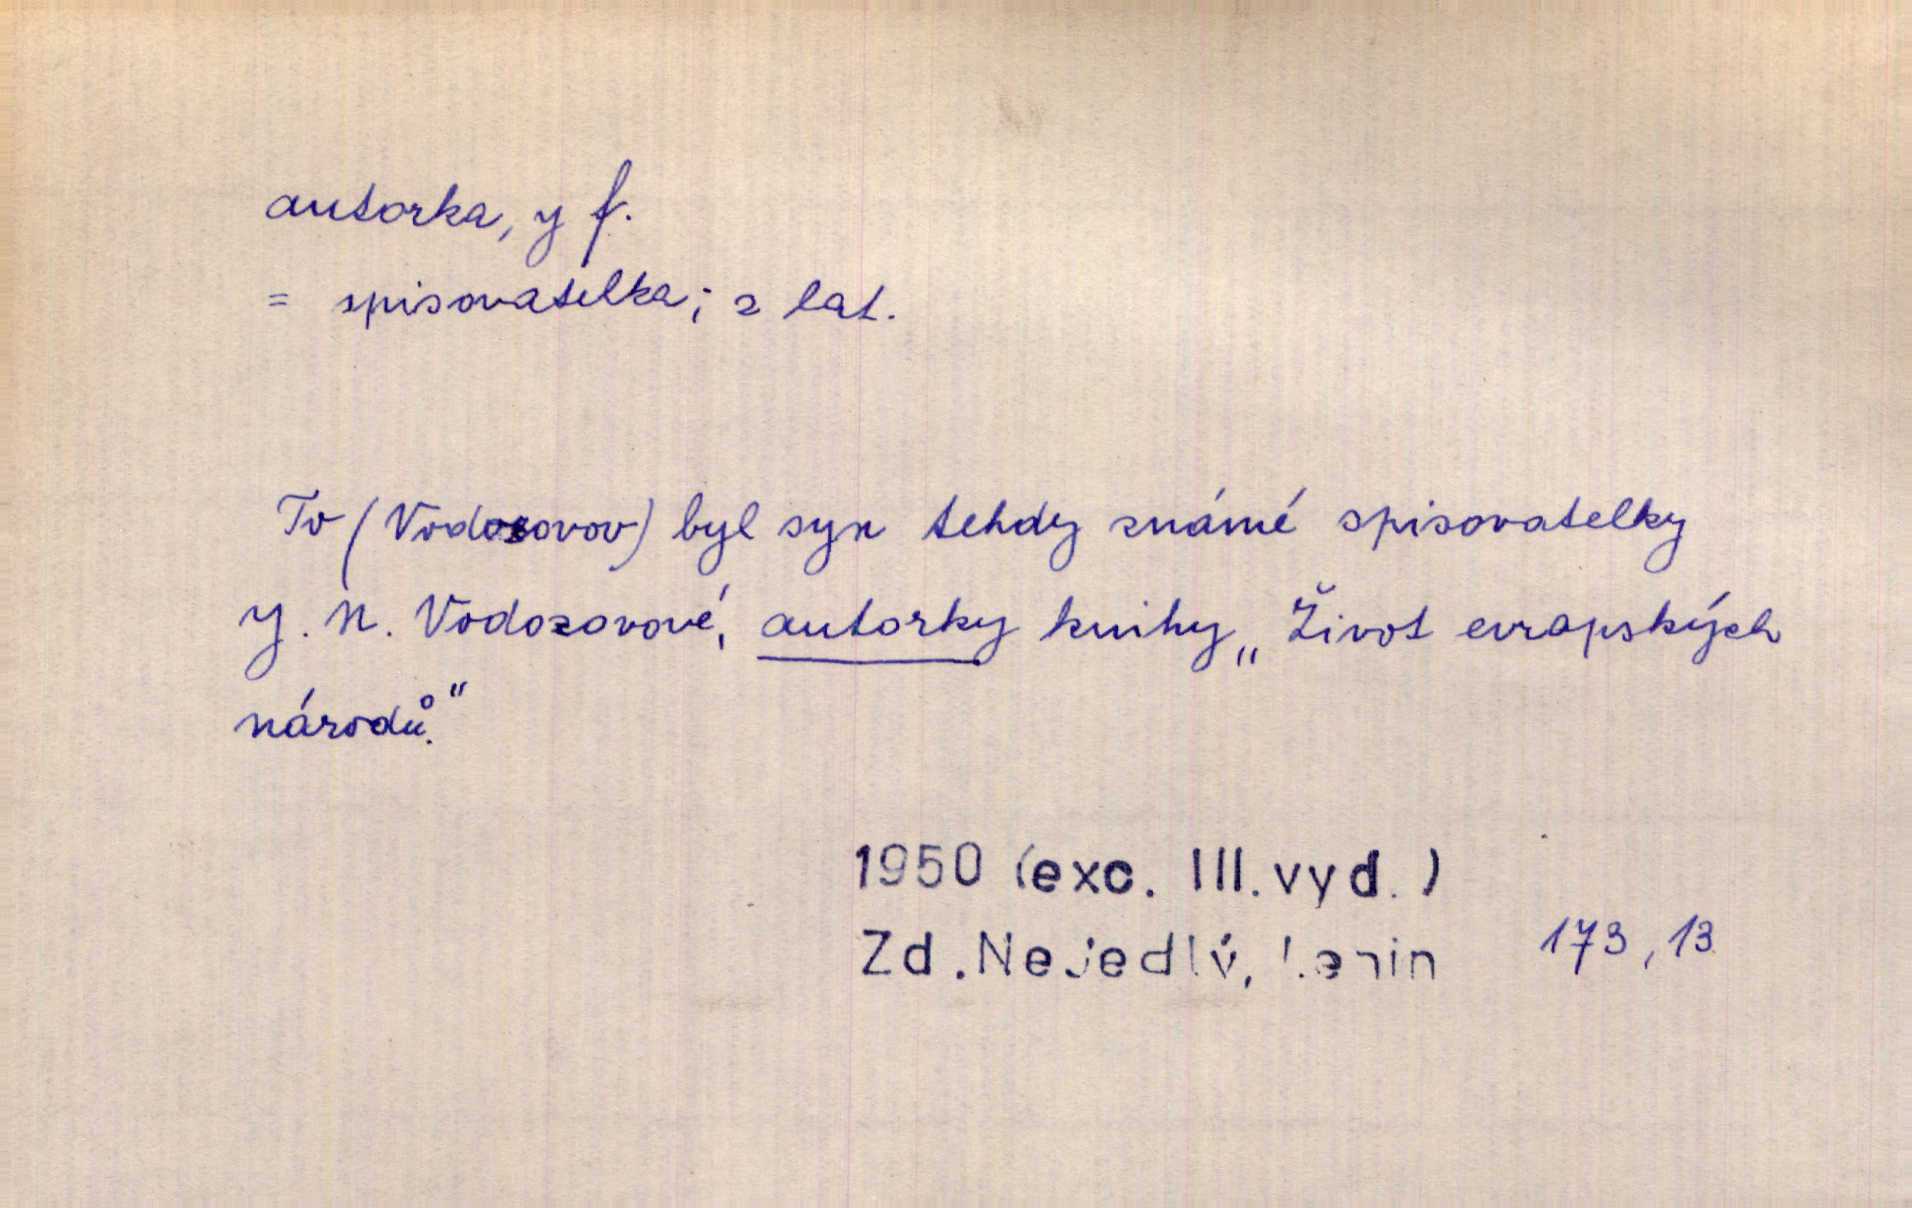 autorka, y f.
= spisovatelka; z lat.
To (Vodozovov) byl syn tehdy známé spisovatelky
J. N. Vodozovové, autorky knihy „Život evropských
národů."
1950 (exc. III. vyd.)
Zd. Nejedlý, Lenin 173, 13